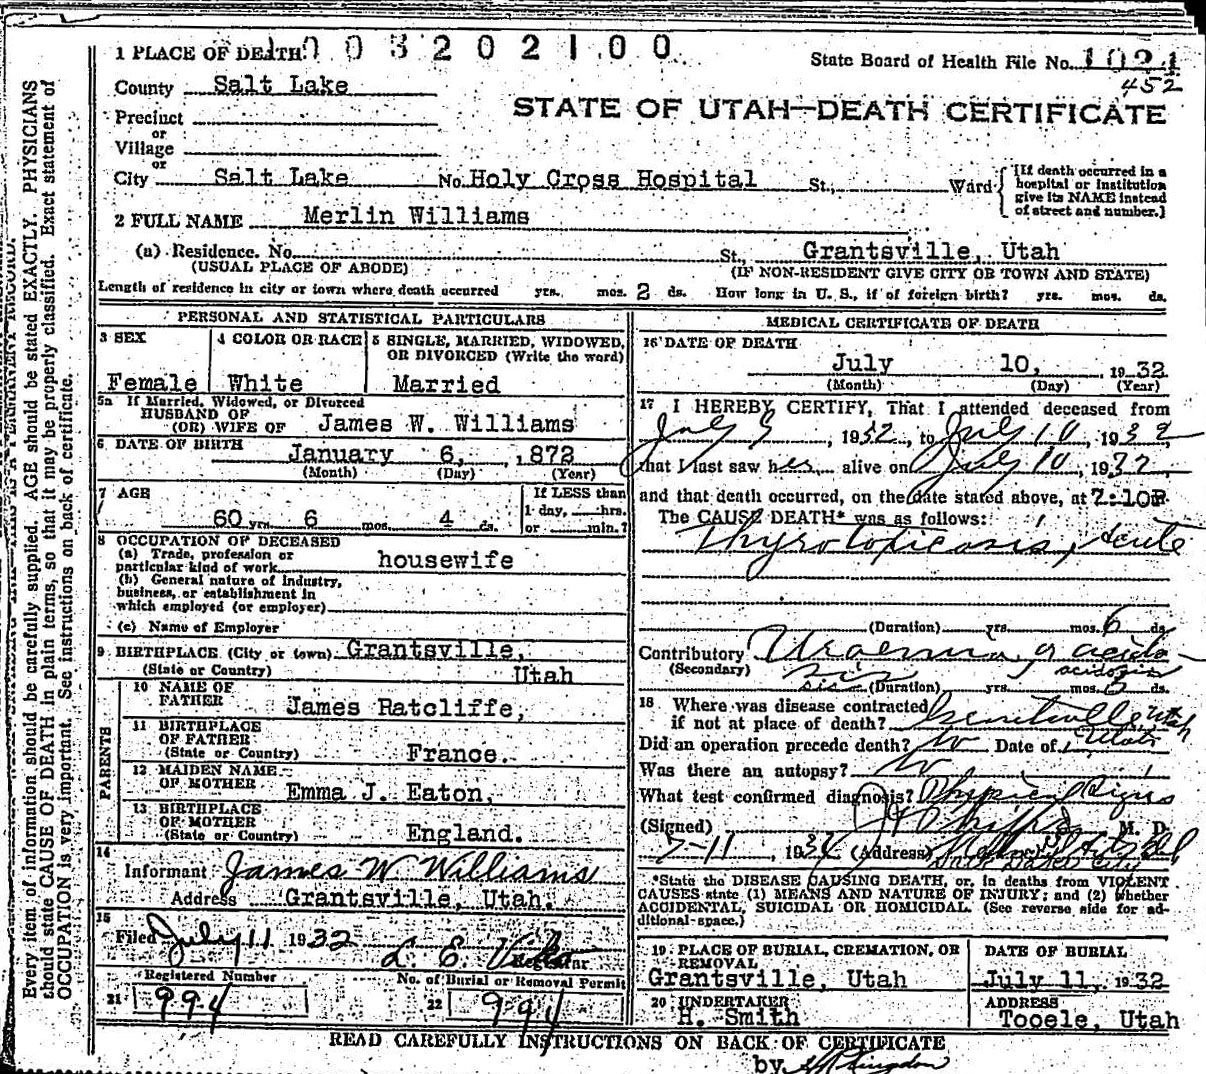 1 PLACE OF DEATH 003202100
State Board of Health File No. 1021
452
County Salt Lake
STATE OF UTAH—DEATH CERTIFICATE
Precinct
or
Village
or
City Salt Lake No. Holy Cross Hospital St., Ward
{If death occurred in a
hospital or institution
give its NAME instead
of street and number.}
2 FULL NAME Merlin Williams
(a) Residence. No. St., Grantsville, Utah
(USUAL PLACE OF ABODE) (IF NON-RESIDENT GIVE CITY OR TOWN AND STATE)
Length of residence in city or town where death occurred yrs. mos. 2 ds. How long in U. S., if of foreign birth? yrs. mos. ds.
PERSONAL AND STATISTICAL PARTICULARS
3 SEX
Female
4 COLOR OR RACE
White
5 SINGLE, MARRIED, WIDOWED,
OR DIVORCED (Write the word)
Married
5a If Married, Widowed, or Divorced
HUSBAND OF
(OR) WIFE OF James W. Williams
6 DATE OF BIRTH
January 6, 1872
(Month) (Day) (Year)
7 AGE
60 yrs. 6 mos. 4 ds.
If LESS than
1 day, hrs.
or min.?
8 OCCUPATION OF DECEASED
(a) Trade, profession or
particular kind of work housewife
(b) General nature of industry,
business, or establishment in
which employed (or employer)
(c) Name of Employer
9 BIRTHPLACE (City or town) Grantsville,
(State or Country) Utah
PARENTS
10 NAME OF
FATHER James Ratcliffe,
11 BIRTHPLACE
OF FATHER
(State or Country) France.
12 MAIDEN NAME
OF MOTHER Emma J. Eaton,
13 BIRTHPLACE
OF MOTHER
(State or Country) England.
14
Informant James W Williams
Address Grantsville, Utah.
15
Filed July 11 1932 L. E.
Registrar
Registered Number
21 994
No. of Burial or Removal Permit
22 994
MEDICAL CERTIFICATE OF DEATH
16 DATE OF DEATH
July 10, 1932
(Month) (Day) (Year)
17 I HEREBY CERTIFY, That I attended deceased from
July 1932, to July 10, 1932
that I last saw her alive on July 10, 1932,
and that death occurred, on the date stated above, at 7:10P
The CAUSE DEATH* was as follows:
Thyrotoxicosis, Acute
(Duration) yrs. mos. 6 ds.
Contributory Uraemia & acido
(Secondary) sis acidosis
sis (Duration) yrs. mos. ds.
18 Where was disease contracted
if not at place of death? Grantsville, Utah
Did an operation precede death? No Date of
Was there an autopsy? No
What test confirmed diagnosis? Physical Signs
(Signed) M. D.
7-11, 193 (Address)
*State the DISEASE CAUSING DEATH, or, in deaths from VIOLENT
CAUSES state (1) MEANS AND NATURE OF INJURY; and (2) whether
ACCIDENTAL, SUICIDAL OR HOMICIDAL. (See reverse side for ad-
ditional space.)
19 PLACE OF BURIAL, CREMATION, OR
REMOVAL
Grantsville, Utah
DATE OF BURIAL
July 11, 1932
20 UNDERTAKER
H. Smith
ADDRESS
Tooele, Utah
READ CAREFULLY INSTRUCTIONS ON BACK OF CERTIFICATE
by
Every item of information should be carefully supplied. AGE should be stated EXACTLY. PHYSICIANS
should state CAUSE OF DEATH in plain terms, so that it may be properly classified. Exact statement of
OCCUPATION is very important. See instructions on back of certificate.